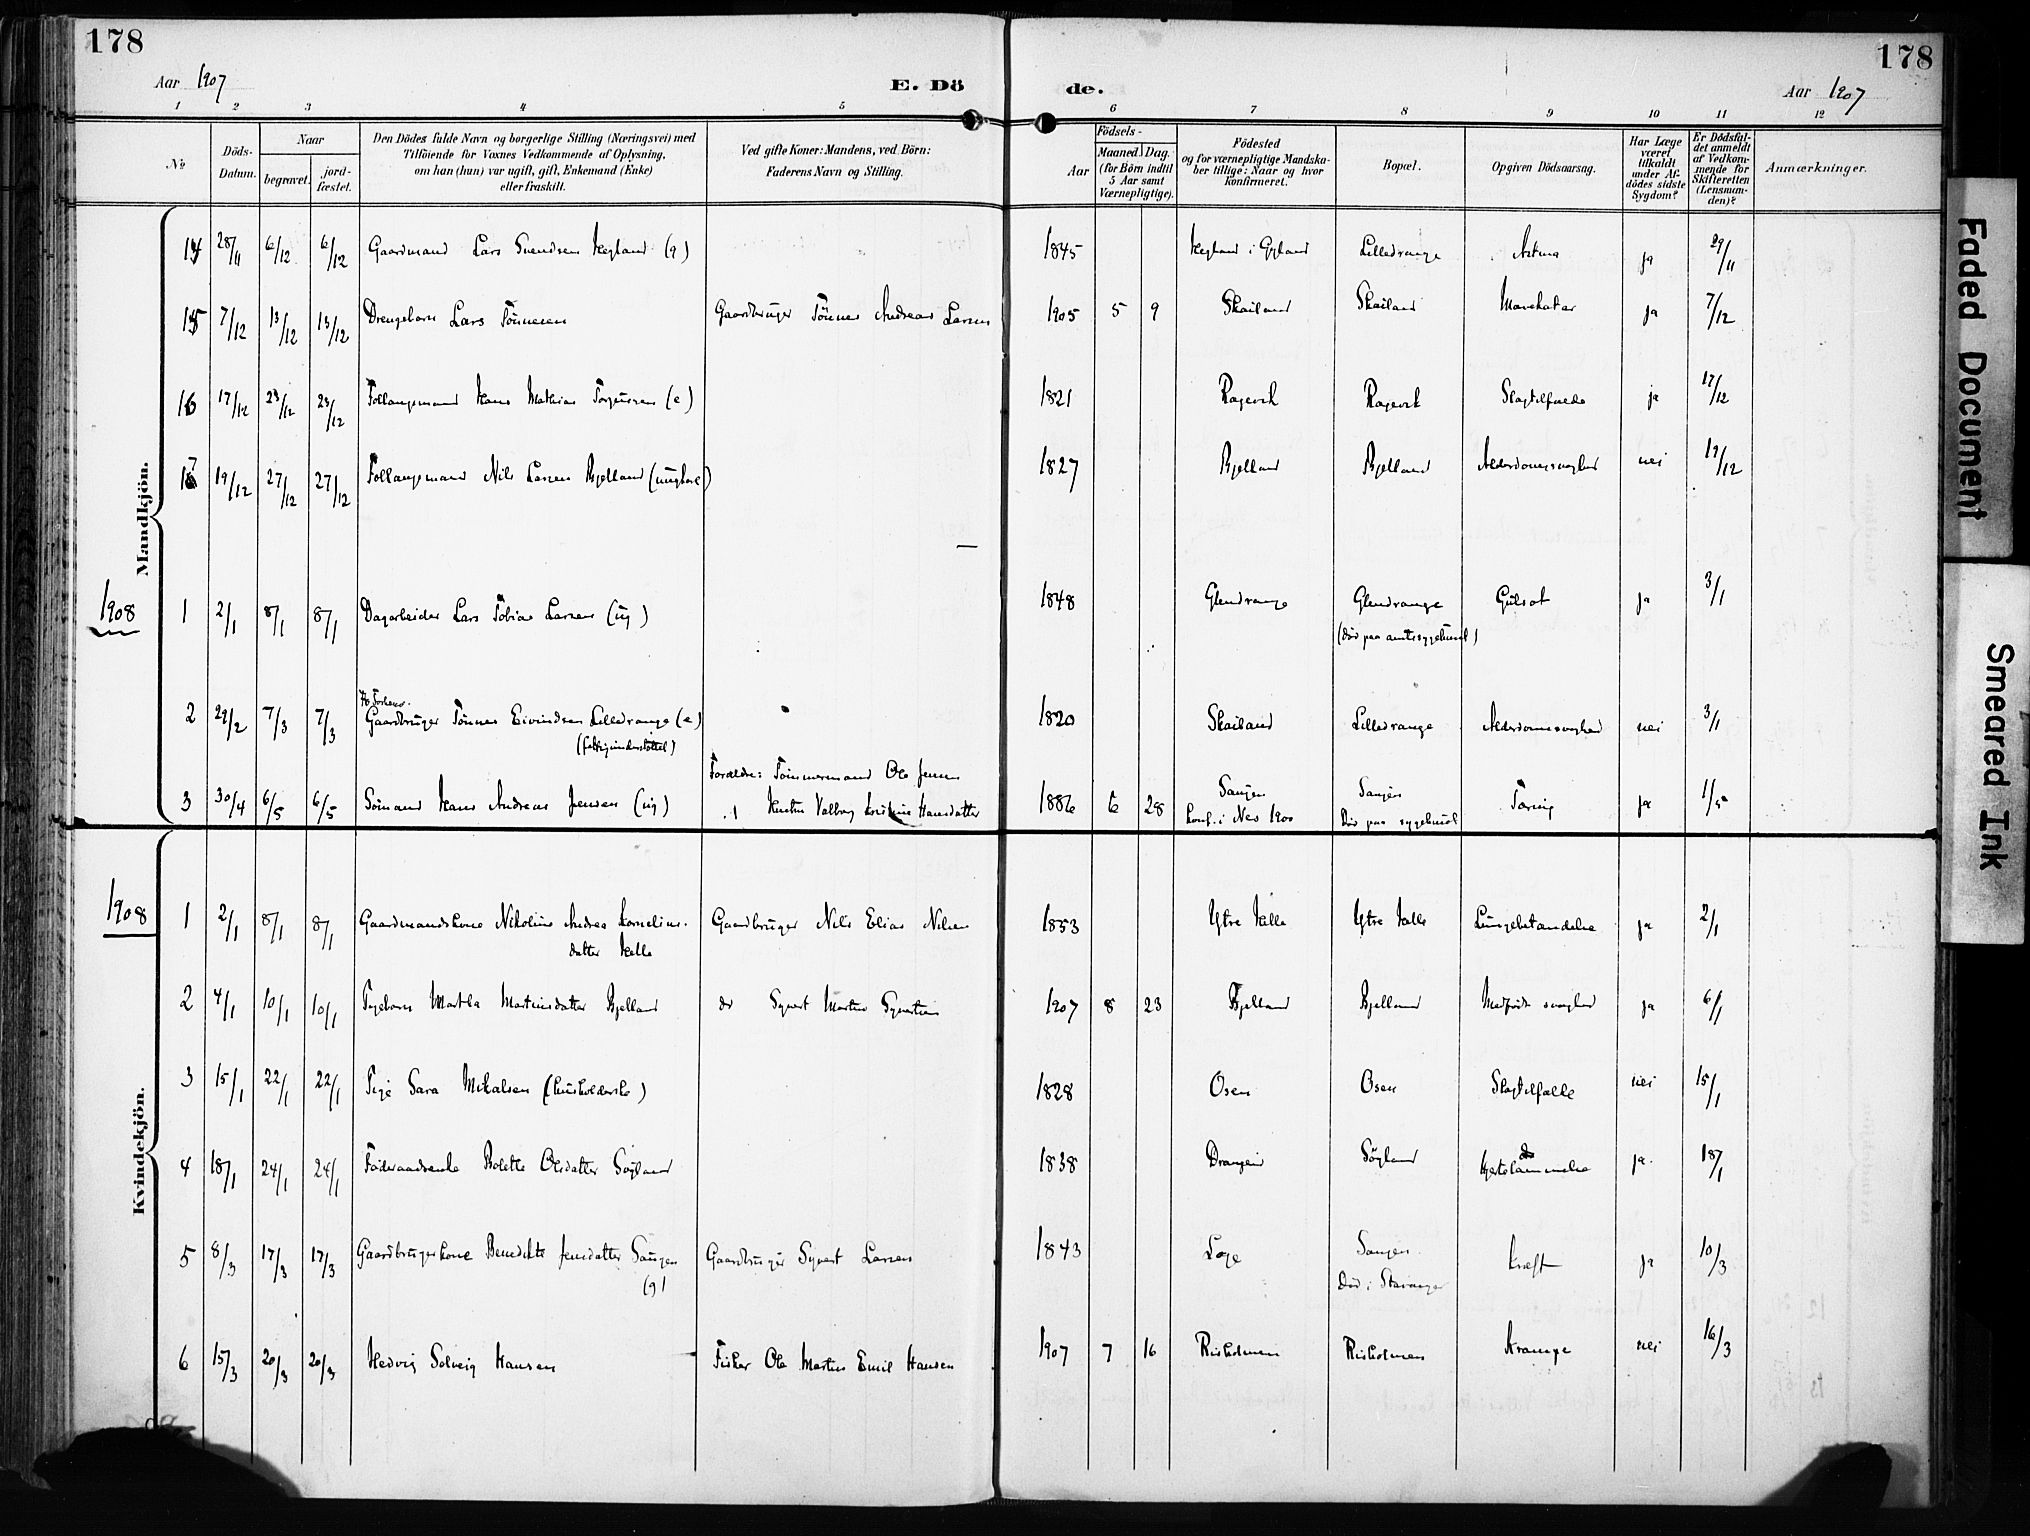 178
178
Aar 1907
E. Dö
de.
Aar 1907
1 2 3 4 5 6 7 8 9 10 11 12
No
Döds-Datum.
Naar
begravet.
jord-fæstet.
Den Dödes fulde Navn og borgerlige Stilling (Næringsvei) med
Tilföiende for Voxnes Vedkommende af Oplysning,
om han (hun) var ugift, gift, Enkemand (Enke)
eller fraskilt.
Ved gifte Koner: Mandens, ved Börn:
Faderens Navn og Stilling.
Födsels-
Aar
Maaned. Dag.
(for Börn indtil
5 Aar samt
Værnepligtige).
Födested
og for værnepligtige Mandska-
ber tillige: Naar og hvor
konfirmeret.
Bopæl.
Opgiven Dödsaarsag.
Har Læge
været
tilkaldt
under Af-
dödes sidste
Sygdom?
Er Dödsfal-
det anmeldt
af Vedkom-
mende for
Skifteretten
(Lensman-
den)?
Anmærkninger.
Mandkjön.
14 28/11 6/12 6/12 Gaardmand Lars Svendsen Hegland (g) 1845 Hegland i Gyland Lilledrange Astma ja 29/11
15 7/12 13/12 13/12 Drengebarn Lars Tönnesen Gaardbruger Tönnes Andreas Larsen 1905 5 9 Skailand Skailand Mavekatar ja 7/12
16 17/12 23/12 23/12 Follaugsmand Hans Mathias Torgersen (e) 1821 Ragevik Ragevik Slagtilfælde ja 17/12
17 19/12 27/12 27/12 Follaugsmand Nils Larsen Bjelland (ungkarl) 1827 Bjelland Bjelland Alderdomssvaghed nei 19/12
1908
1 2/1 8/1 8/1 Dagarbeider Lars Tobias Larsen (ug) 1848 Glendrange Glendrange Gulsot ja 3/1
(död paa amtssygehuset)
2 29/2 7/3 7/3 Gaardbruger Tönnes Eivindsen Lilledrange (e) 1820 Skailand Lilledrange Alderdomssvaghed nei 3/1
(fattigunderstöttet)
Forældre: Tömmermand Ole Jensen
3 30/4 6/5 6/5 Sömand Hans Andreas Jensen (ug) Valborg Kristine Hansdatter 1886 6 28 Saugen Saugen Tæring ja 1/5
konf. i Nes 1900 Död paa sygehuset
1908
Kvindekjön.
1 2/1 8/1 8/1 Gaardmandskone Nikoline Andrea Kornelius- Gaardbruger Nils Elias Nilsen 1853 Ytre Kalle Ytre Kalle Lungebetændelse ja 2/1
datter Kalle
2 4/1 10/1 10/1 Pigebarn Martha Martinsdatter Bjelland do Syvert Martin Syvertsen 1907 8 23 Bjelland Bjelland Medfödt svaghed ja 6/1
3 15/1 22/1 22/1 Pige Sara Mikalsen (husholderske) 1828 Osen Osen Slagtilfælde nei 15/1
4 18/1 24/1 24/1 Föderaadsenke Bolette Olsdatter Söyland 1838 Drangeid Söyland Hjertelammelse ja 18/1
5 8/3 17/3 17/3 Gaardbrugerkone Benedikte Jensdatter Saugen Gaardbruger Syvert Larsen 1843 Loge Saugen Kræft ja 10/3
(g) Död i Stavanger
6 15/3 20/3 20/3 Hedvig Solveig Hansen Fisker Ole Martin Emil Hansen 1907 7 16 Risholmen Risholmen Krampe nei 16/3
Faded Document
Smeared Ink